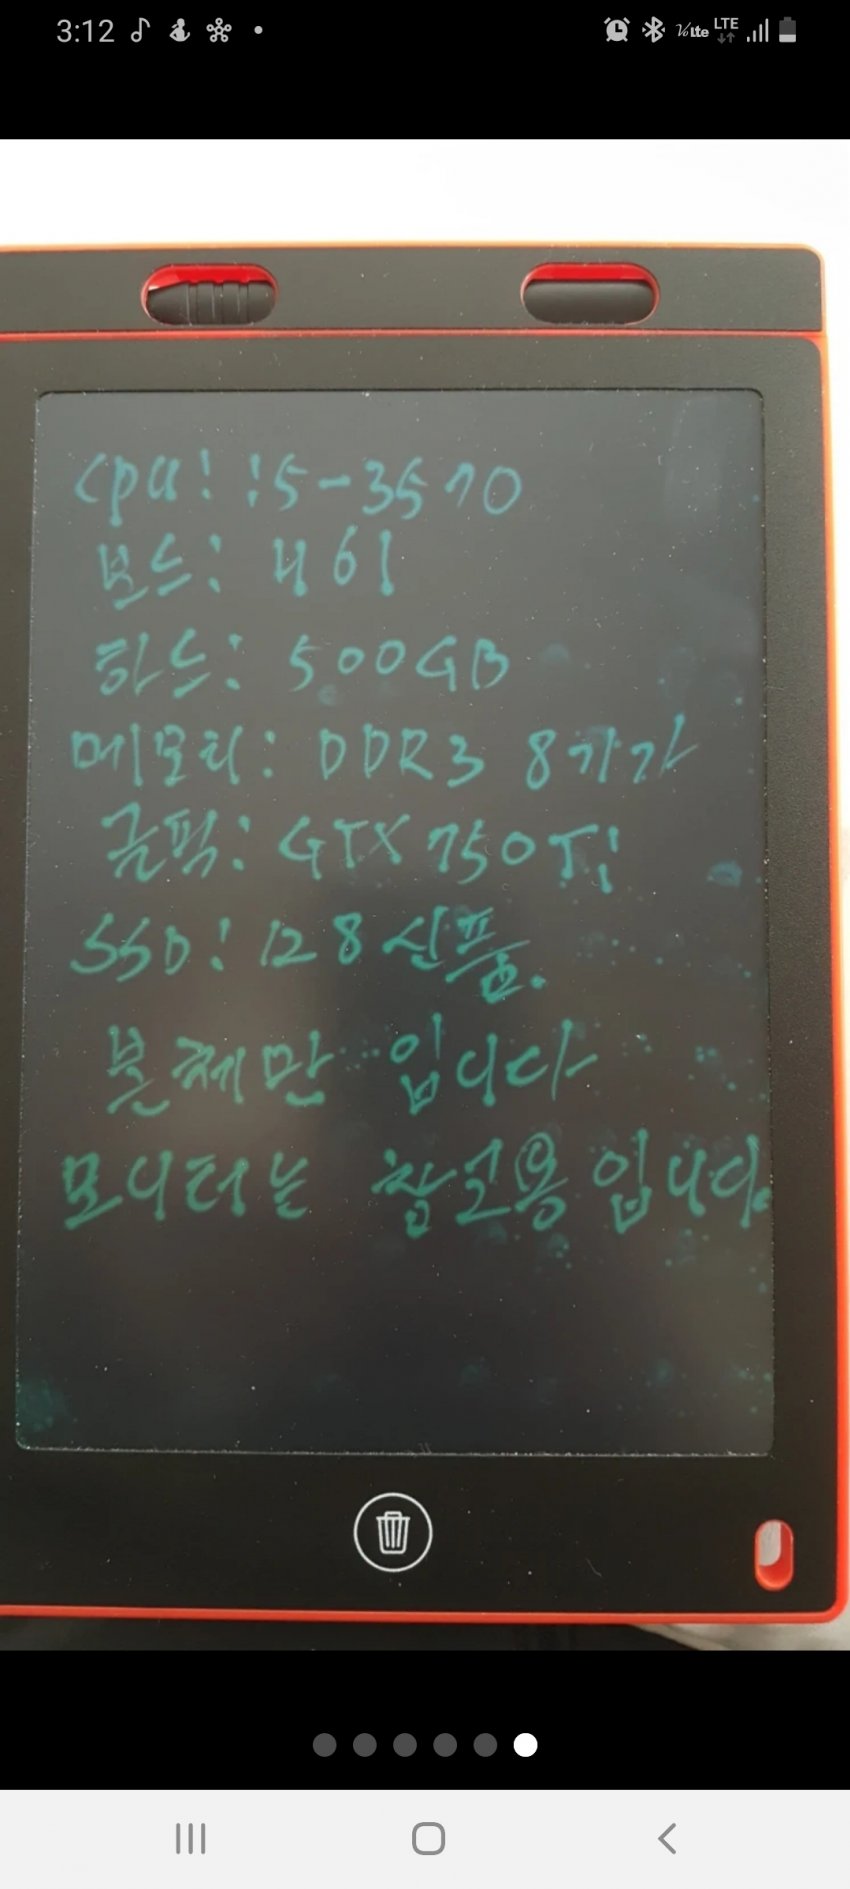 3:12
LTE
cpu: i5-3570
보드: H61
하드: 500GB
메모리: DDR3 8기가
글픽: GTX 750Ti
SSD: 128 신품.
본체만 입니다
모니터는 참고용 입니다.